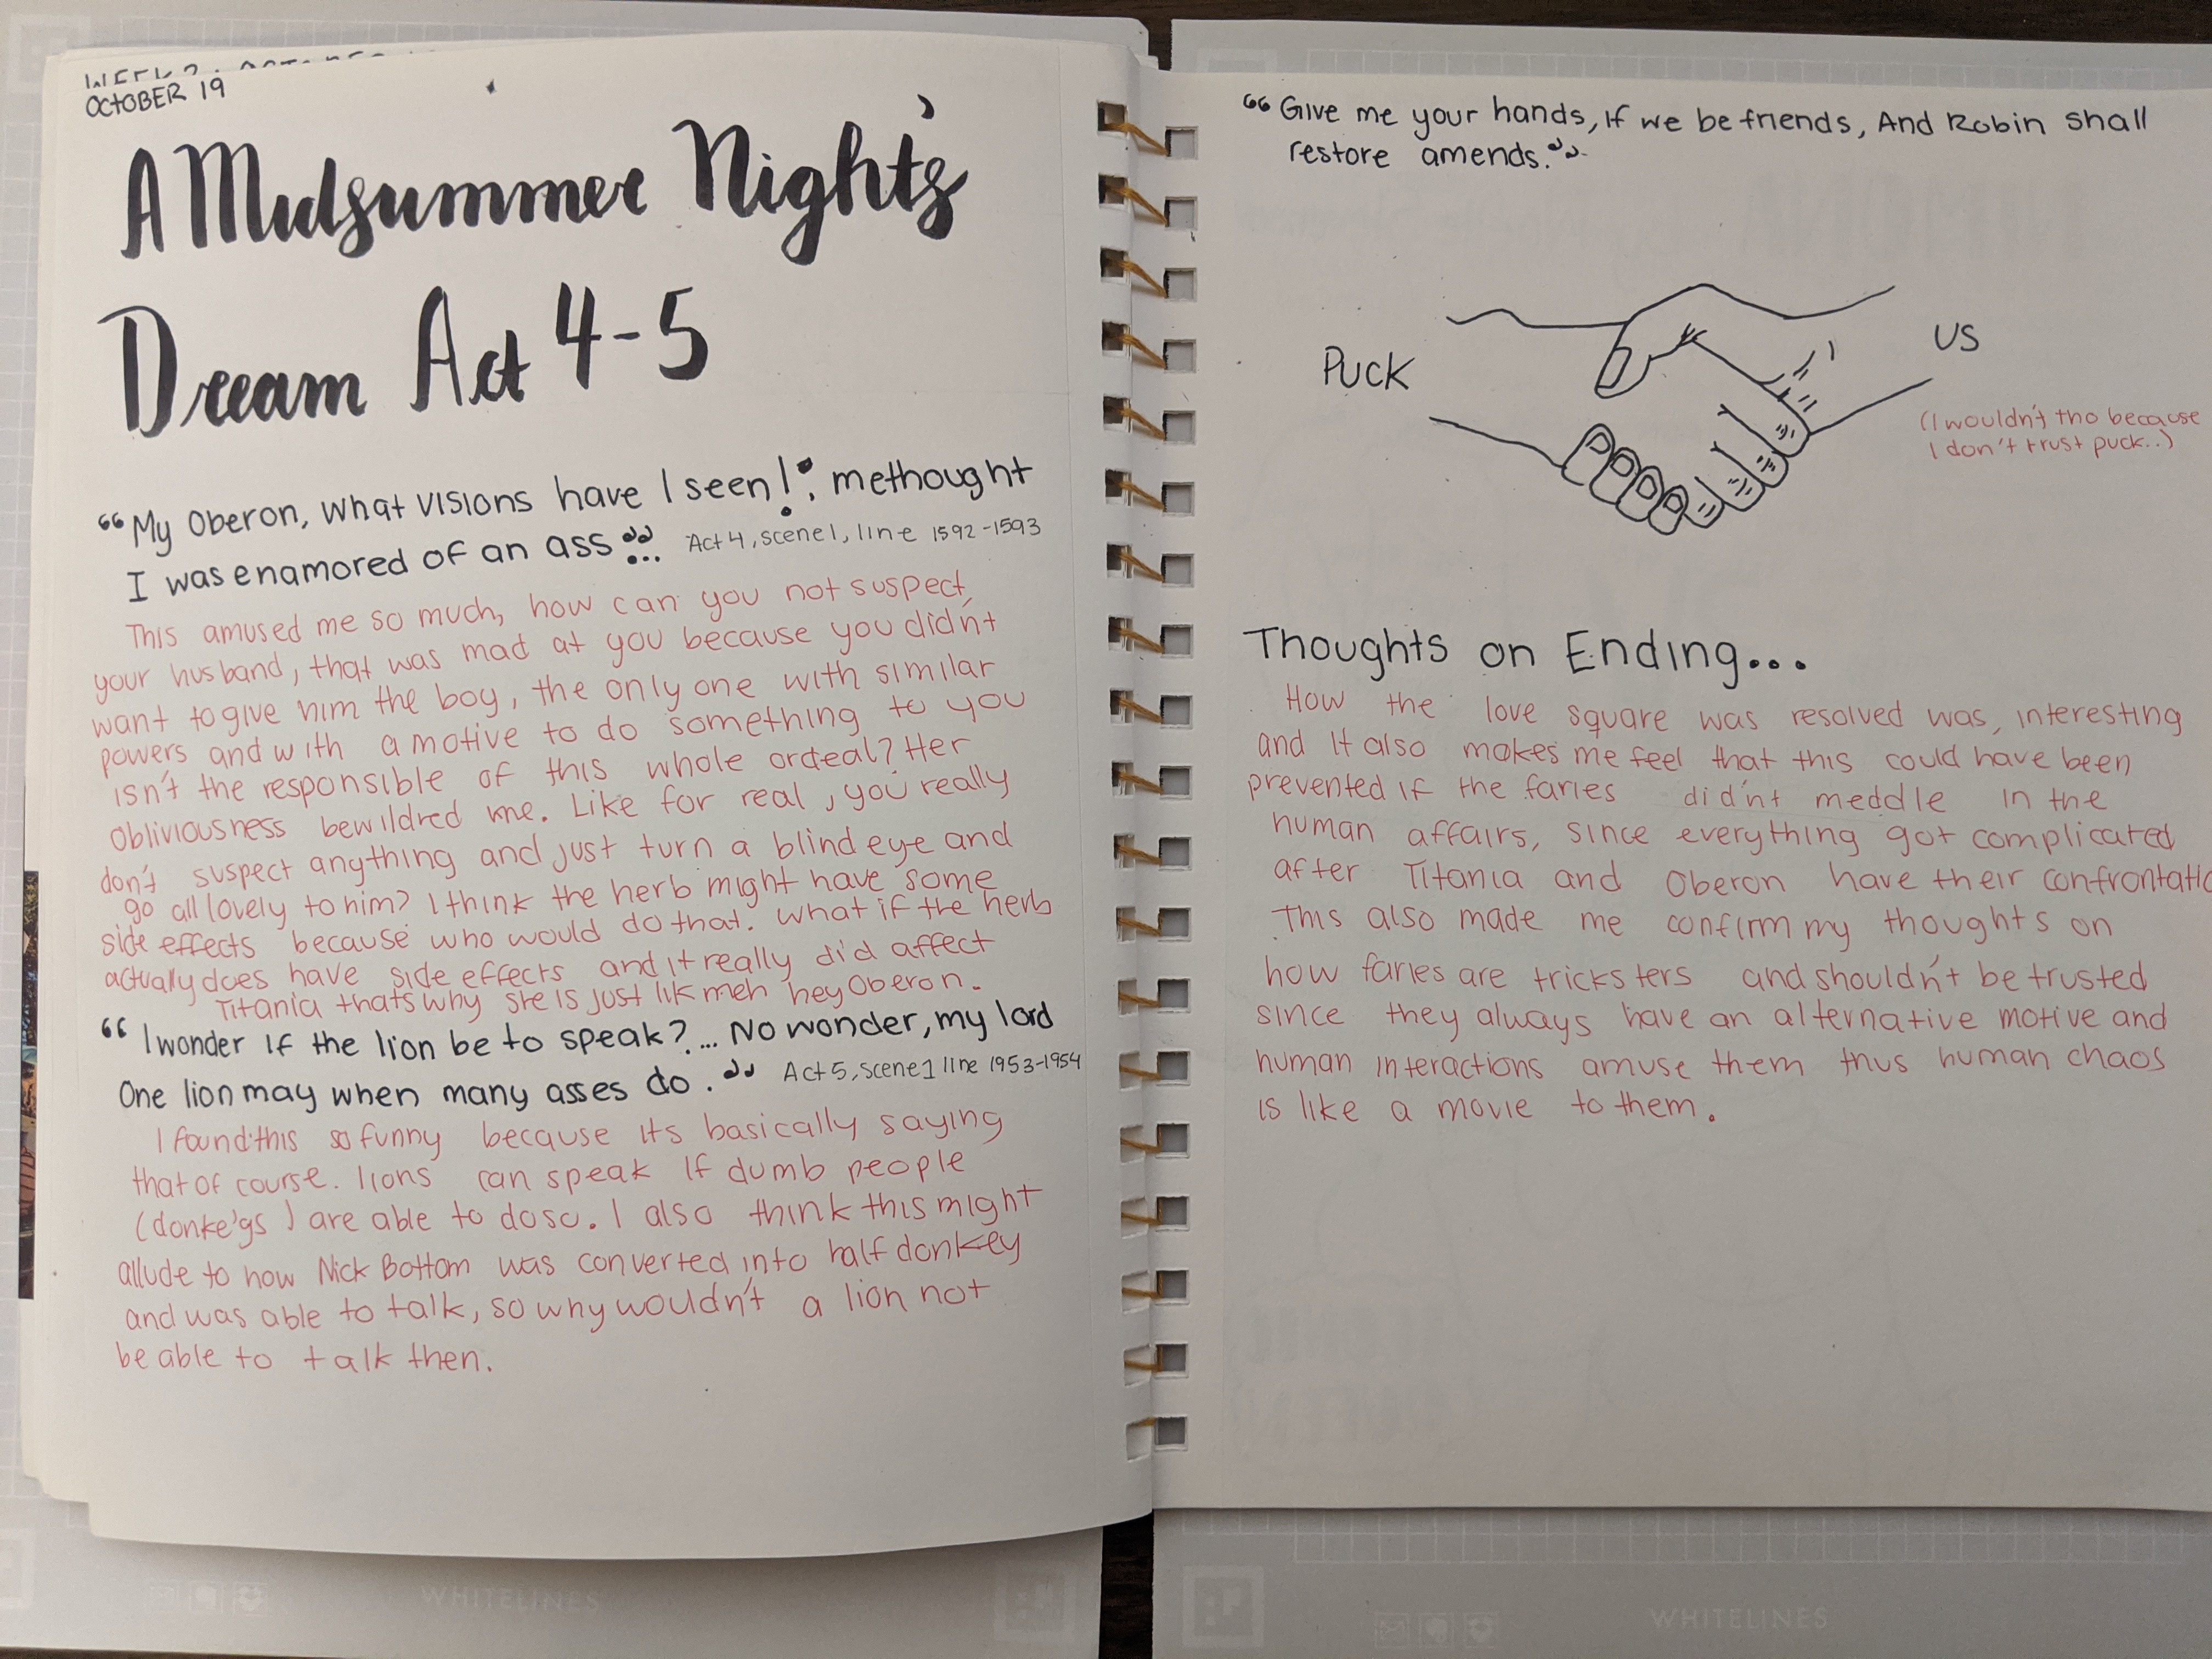 OCTOBER 19
A Midsummer Night's
Dream Act 4-5
"My Oberon, what visions have I seen! methought
I was enamored of an ass"... Act 4, scene 1, line 1592-1593
This amused me so much, how can you not suspect,
your husband, that was mad at you because you didn't
want to give him the boy, the only one with similar
powers and with a motive to do something to you
isn't the responsible of this whole ordeal? Her
obliviousness bewildred me. Like for real, you really
don't suspect anything and just turn a blind eye and
go all lovely to him? I think the herb might have some
side effects because who would do that. What if the herb
actually does have side effects and it really did affect
Titania thats why she is just lik meh hey Oberon.
"I wonder if the lion be to speak?... No wonder, my lord
One lion may when many asses do." Act 5, scene 1 line 1953-1954
I found this so funny because its basically saying
that of course. lions can speak if dumb people
(donke'ys) are able to do so. I also think this might
allude to how Nick Bottom was converted into half donkey
and was able to talk, so why wouldn't a lion not
be able to talk then.
"Give me your hands, if we be friends, And Robin shall
restore amends."
PUCK
US
(I wouldn't tho because
I don't trust puck..)
Thoughts on Ending...
How the love square was resolved was, interesting
and it also makes me feel that this could have been
prevented if the faries did'nt meddle in the
human affairs, since everything got complicated
after Titania and Oberon have their confrontatio
This also made me confirm my thoughts on
how faries are tricksters and shouldn't be trusted
since they always have an alternative motive and
human interactions amuse them thus human chaos
is like a movie to them.
WHITELINES
WHITELINES